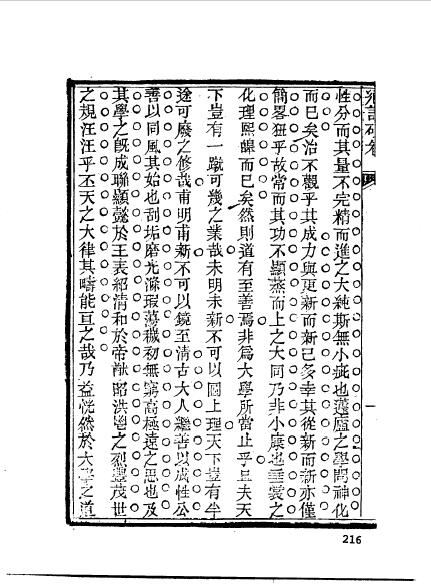 性分而其量不完精而進之大純斯無小疵也蘧廬之學問神化
而已矣治不觀乎其成力與更新而新已多幸其從新而新亦僅
簡畧狃乎故常而其功不顯蒸而上之大同乃非小康也垂裳之
化理熙皥而已矣然則道有至善焉非爲大學所當止乎且夫天
下豈有一蹴可幾之業哉未明未新不可以圖上理天下豈有半
途可廢之修哉甫明甫新不可以鏡至清古大人繼善以成性公
善以同風其始也刮垢磨光滌瑕蕩穢初無窮高極遠之思也及
其學之旣成聯顯懿於王表紹清和於帝猷昭洪鬯之烈豐茂世
之規汪汪乎丕天之大律其疇能亘之哉乃益恍然於大學之道
216